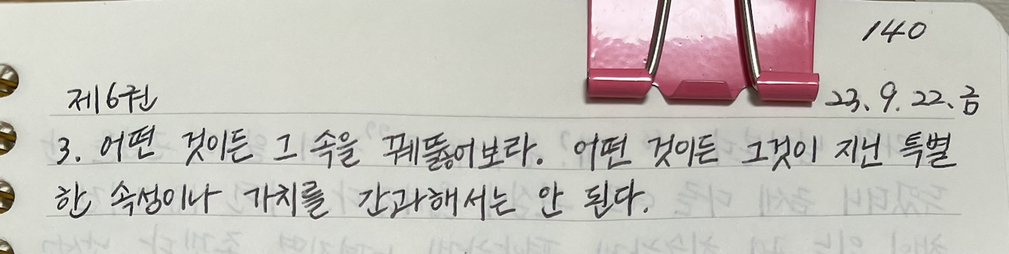 140
제6권
23. 9. 22. 금
3. 어떤 것이든 그 속을 꿰뚫어보라. 어떤 것이든 그것이 지닌 특별
한 속성이나 가치를 간과해서는 안 된다.